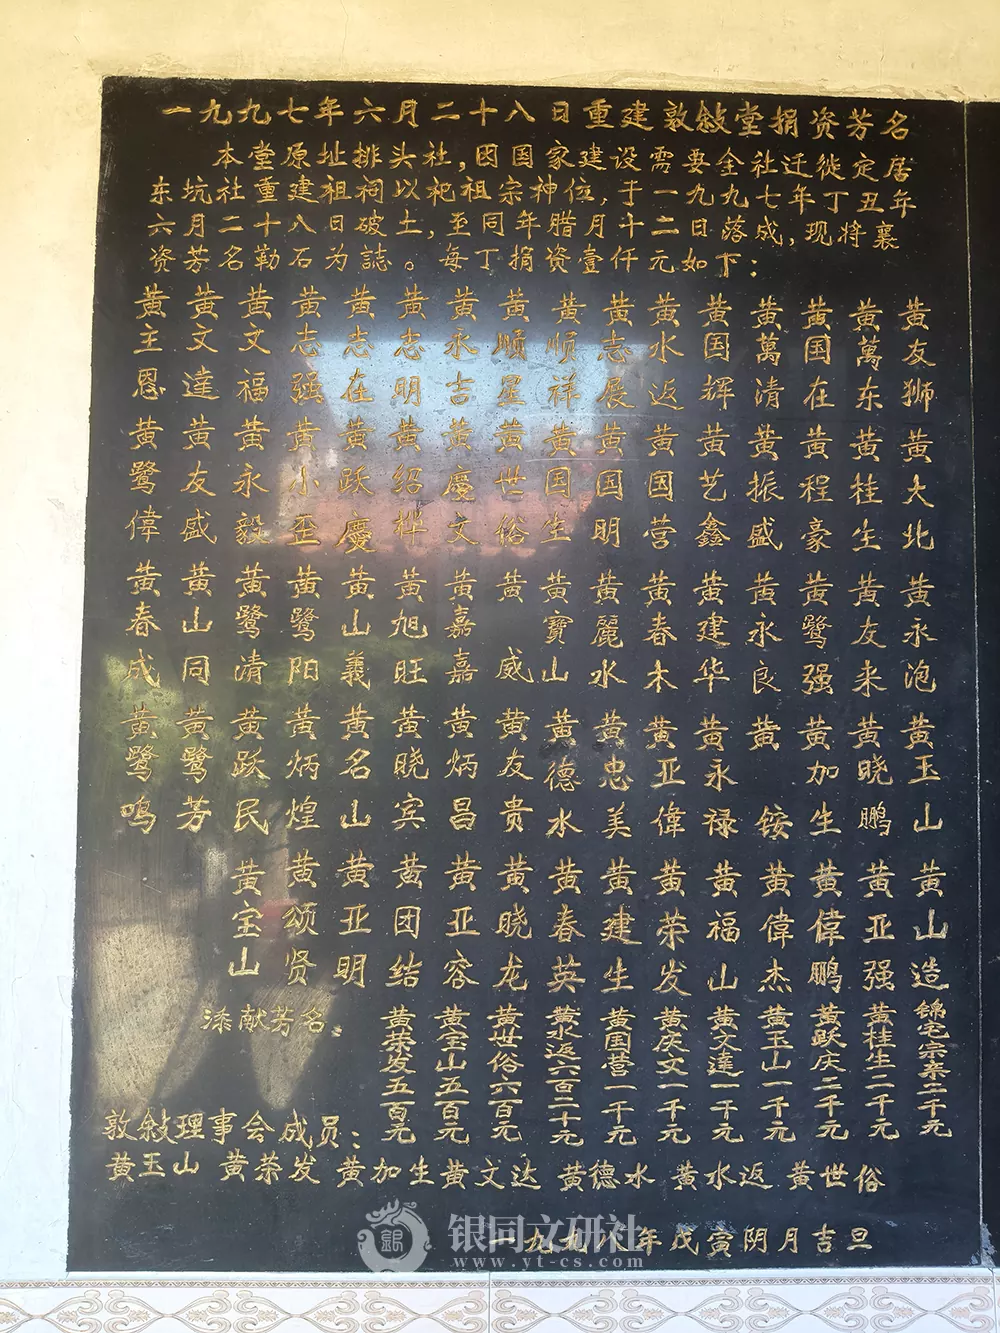 一九九七年六月二十八日重建敦敍堂捐资芳名
本堂原址排头社,因国家建设需要全社迁徙定居
东坑社重建祖祠以祀祖宗神位,于一九九七年丁丑年
六月二十八日破土,至同年腊月十二日落成,现将襄
资芳名勒石为誌。每丁捐资壹仟元如下:
黄主恩 黄文達 黄文福 黄志强 黄志在 黄志明 黄永吉 黄順星 黄順祥 黄志展 黄水返 黄国辉 黄萬清 黄国在 黄萬东 黄友狮
黄鹭偉 黄友盛 黄永毅 黄小歪 黄跃慶 黄绍桦 黄慶文 黄世俗 黄国生 黄国明 黄国营 黄艺鑫 黄振盛 黄程豪 黄桂生 黄大北
黄春成 黄山同 黄鹭清 黄鹭阳 黄山義 黄旭旺 黄嘉嘉 黄威 黄寶山 黄麗水 黄春木 黄建华 黄永良 黄鹭强 黄友来 黄永泡
黄鹭鸣 黄鹭芳 黄跃民 黄炳煌 黄名山 黄晓宾 黄炳昌 黄友贵 黄德水 黄忠美 黄亚偉 黄永禄 黄铵 黄加生 黄晓鹏 黄玉山
黄宝山 黄颂贤 黄亚明 黄团结 黄亚容 黄晓龙 黄春英 黄建生 黄荣发 黄福山 黄偉杰 黄偉鹏 黄亚强 黄山造
添献芳名:
黄荣发五百元
黄宝山五百元
黄世俗六百元
黄水返六百二十元
黄国营一千元
黄庆文一千元
黄文達一千元
黄玉山一千元
黄跃庆二千元
黄桂生二千元
锦宅宗亲二千元
敦敍理事会成员:
黄玉山 黄荣发 黄加生 黄文达 黄德水 黄水返 黄世俗
一九九八年戊寅阴月吉旦
银同文研社
www.yt-cs.com